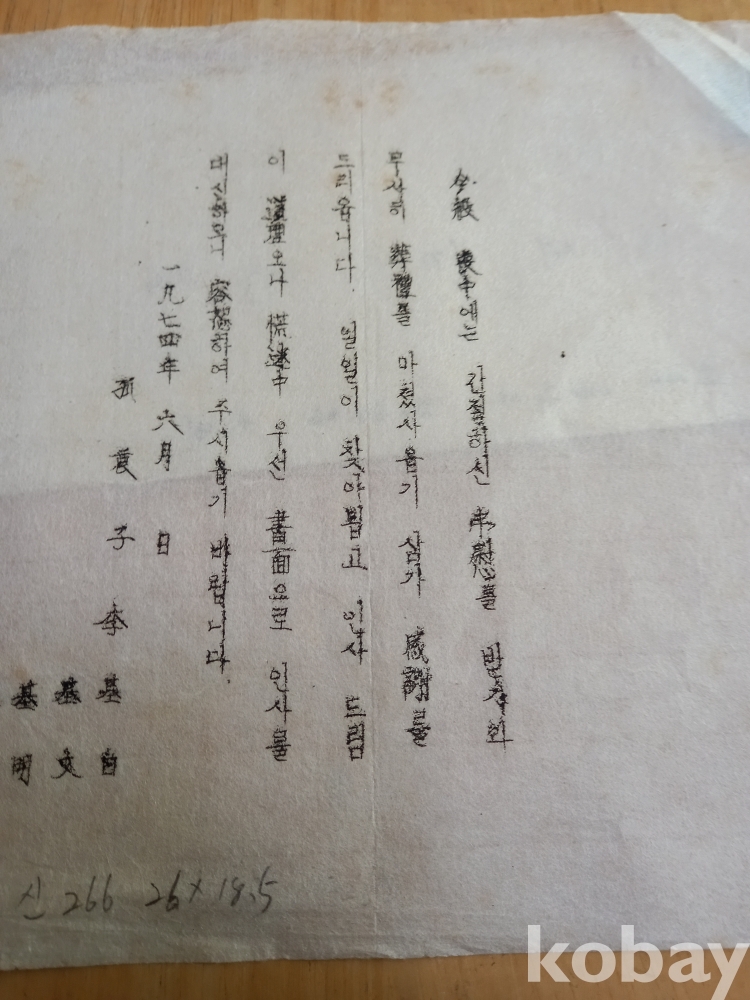 今般 喪中에는 간절하신 弔慰를 받자와
무사히 葬禮를 마쳤사옵기 삼가 感謝를
드리옵니다. 일일이 찾아뵙고 인사 드림
이 道理오나 慌迷中 우선 書面으로 인사를
대신하오니 容恕하여 주시옵기 바랍니다.
一九七四年 六月 日
孤哀子 李基
基文
基明
신 266 26×18.5
kobay